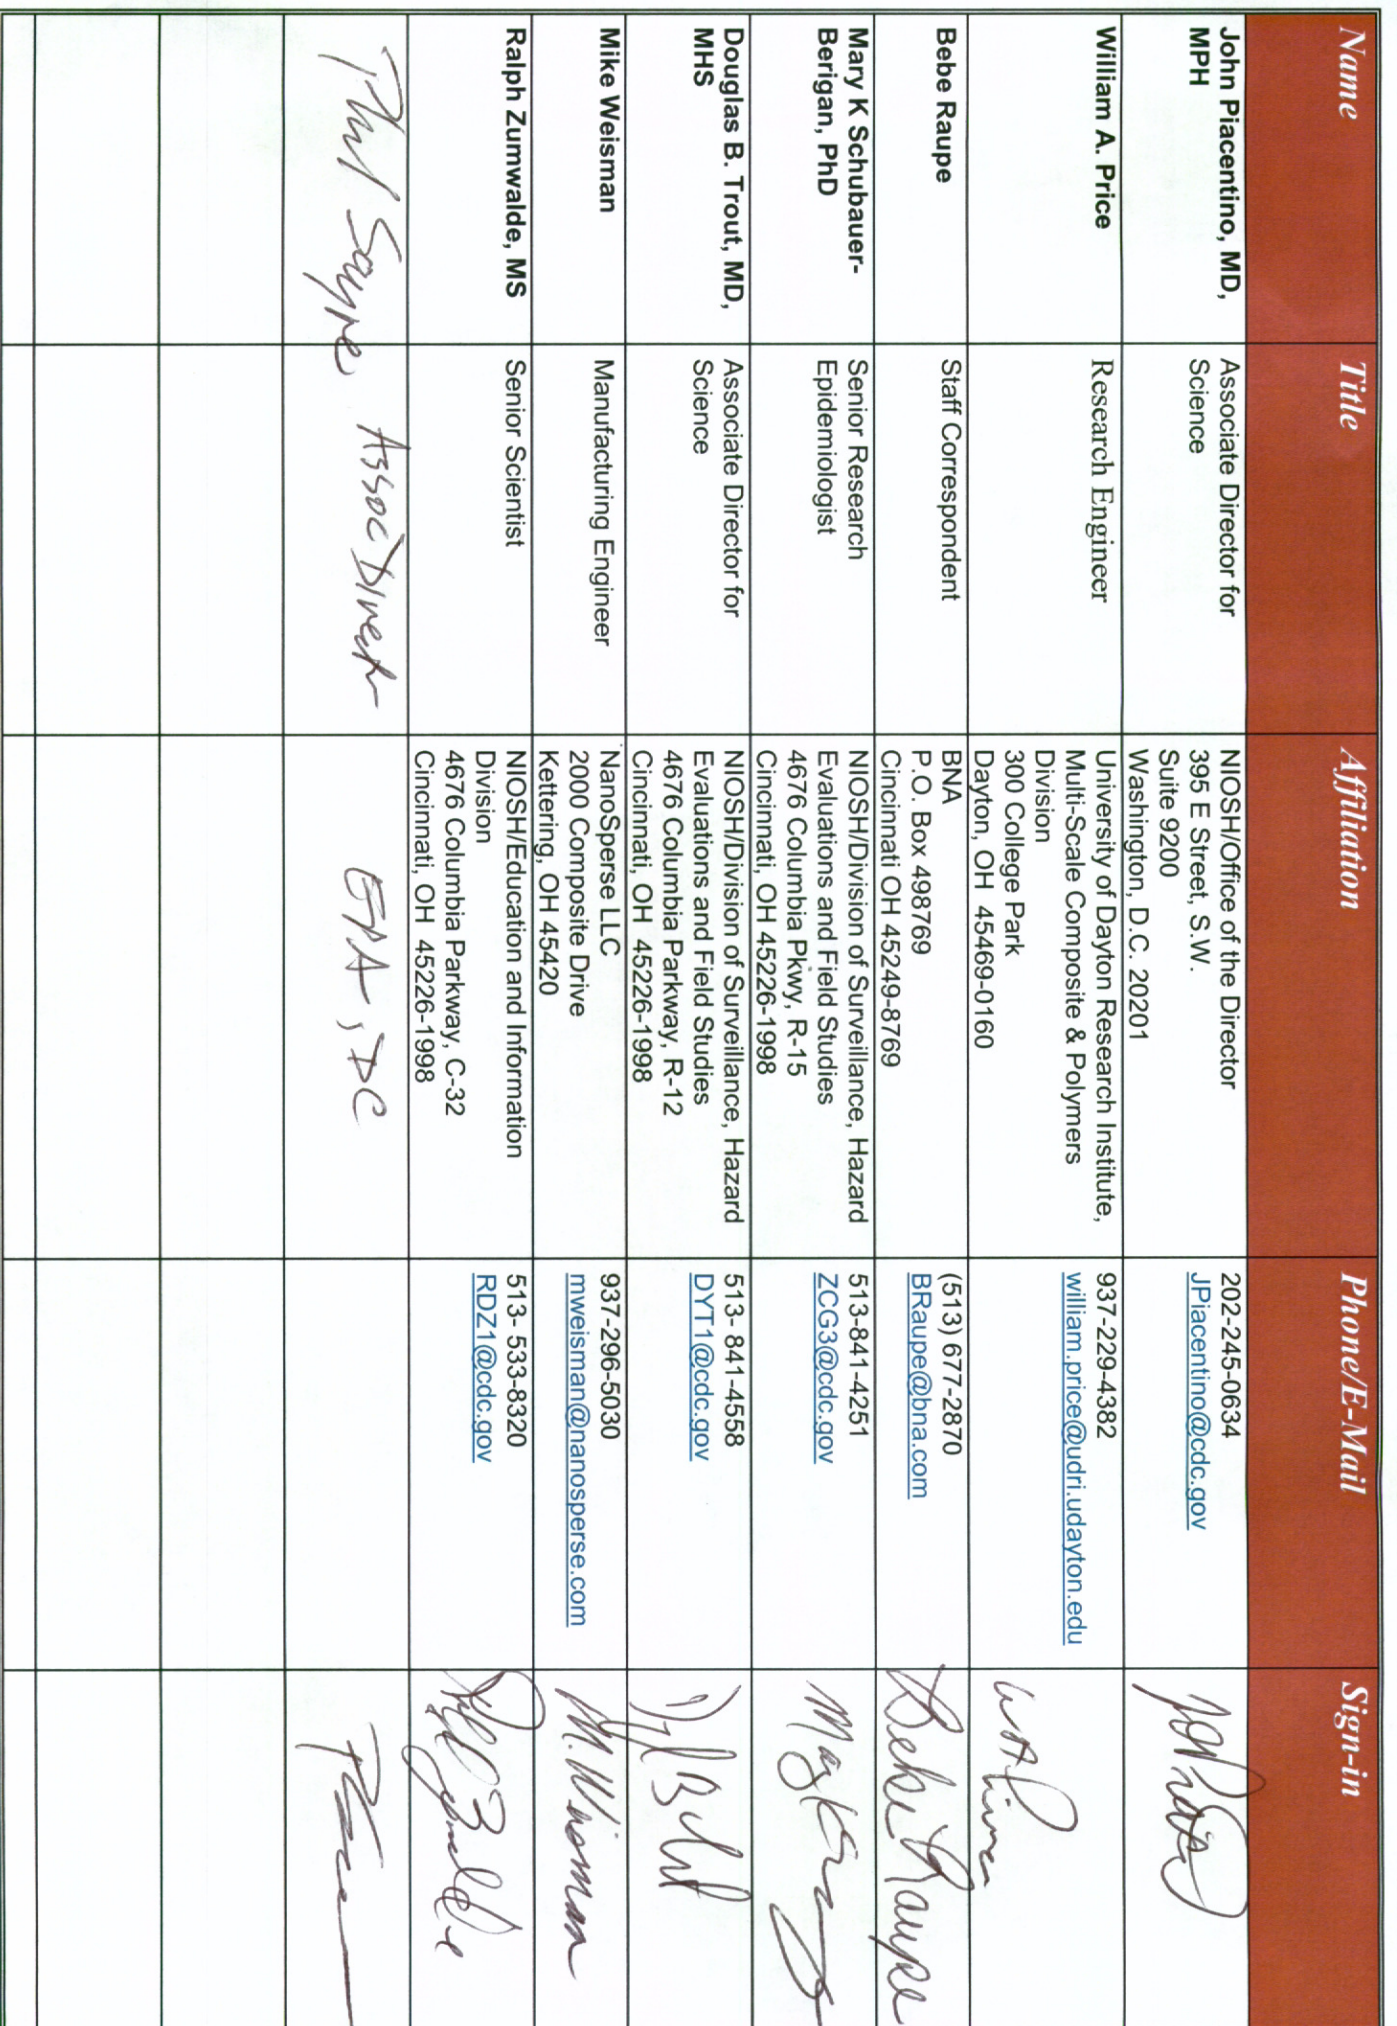 Name Title Affiliation Phone/E-Mail Sign-in
John Piacentino, MD,
MPH
Associate Director for
Science
NIOSH/Office of the Director
395 E Street, S.W.
Suite 9200
Washington, D.C. 20201
202-245-0634
JPiacentino@cdc.gov
William A. Price
Research Engineer
University of Dayton Research Institute,
Multi-Scale Composite & Polymers
Division
300 College Park
Dayton, OH  45469-0160
937-229-4382
william.price@udri.udayton.edu
Bebe Raupe
Staff Correspondent
BNA
P.O. Box 498769
Cincinnati OH 45249-8769
(513) 677-2870
BRaupe@bna.com
Bebe Raupe
Mary K Schubauer-
Berigan, PhD
Senior Research
Epidemiologist
NIOSH/Division of Surveillance, Hazard
Evaluations and Field Studies
4676 Columbia Pkwy, R-15
Cincinnati, OH 45226-1998
513-841-4251
ZCG3@cdc.gov
Douglas B. Trout, MD,
MHS
Associate Director for
Science
NIOSH/Division of Surveillance, Hazard
Evaluations and Field Studies
4676 Columbia Parkway, R-12
Cincinnati, OH  45226-1998
513- 841-4558
DYT1@cdc.gov
Mike Weisman
Manufacturing Engineer
NanoSperse LLC
2000 Composite Drive
Kettering, OH 45420
937-296-5030
mweisman@nanosperse.com
M. Weisman
Ralph Zumwalde, MS
Senior Scientist
NIOSH/Education and Information
Division
4676 Columbia Parkway, C-32
Cincinnati, OH  45226-1998
513- 533-8320
RDZ1@cdc.gov
Phil Sayre, Assoc Direct
EPA, DC